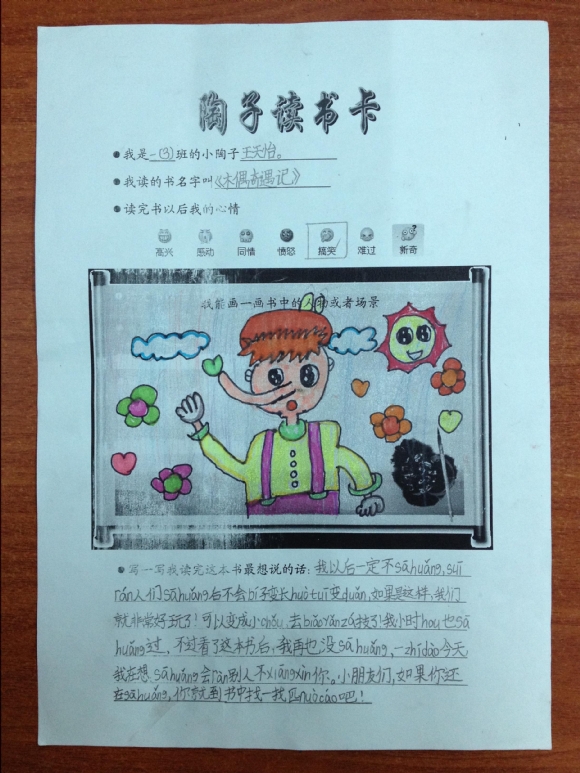 陶子读书卡
我是一(3)班的小陶子王天怡。
我读的书名字叫《木偶奇遇记》
读完书以后我的心情
高兴 感动 同情 愤怒 搞笑 难过 新奇
我能画一画书中的人物或者场景
写一写我读完这本书最想说的话:我以后一定不sāhuǎng,suī
rán人们sāhuǎng后不会bí子变长huò tuǐ变duǎn,如果是这样,我们
就非常好玩了!可以变成小chǒu,去biǎoyǎn zá技了!我小时hou也sā
huǎng过,不过看了这本书后,我再也没sāhuǎng,一zhí dào今天
我在想sāhuǎng会ràn别人不xiāngxìn你。小朋友们,如果你还
在sāhuǎng,你就到书中找一找匹nuòcáo吧!